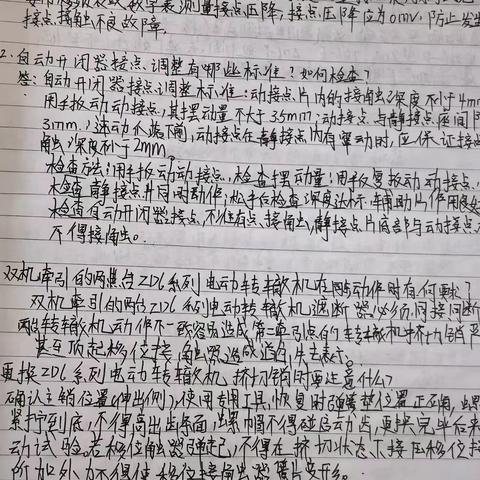 数字表测量接点压降,接点压降应为0mv,防止发生
接点接触不良故障
2.自动开闭器接点调整有哪些标准?如何检查?
答:自动开闭器接点调整标准:动接点片内的接触深度不小于4mm
用手扳动动接点,其摆动量不大于3.5mm;动接点与静接点座间
3mm,速动爪滚落时,动接点在静接点内有窜动时,应保证接点
触深度不小于2mm。
检查方法:用手扳动动接点,检查摆动量;用手反复扳动动接点,
检查静接点片同时动作;松手后检查深度达标,辅助片作用良好
检查自动开闭器接点,不准有点接触,静接点片底部与动接点
不得接触。
双机牵引的两台ZD6系列电动转辙机在动作时有何要求?
双机牵引的两台ZD6系列电动转辙机遮断器必须同接间断
两转辙机动作不一致容易造成第二牵引点的转辙机中挤切销
甚至顶起移位接触器造成道岔失去表示。
更换ZD6系列电动转辙机挤切销时要注意什么?
确认主销位置(伸出侧),使用专用工具,恢复时弹簧垫位置正确,螺
紧拧到底,不得高出齿条面,螺帽不得碰启动齿,更换完毕后来
动试验。若移位接触器弹起,不得在挤切状态下按压移位接
所加外力不得使移位接触器簧片变形。